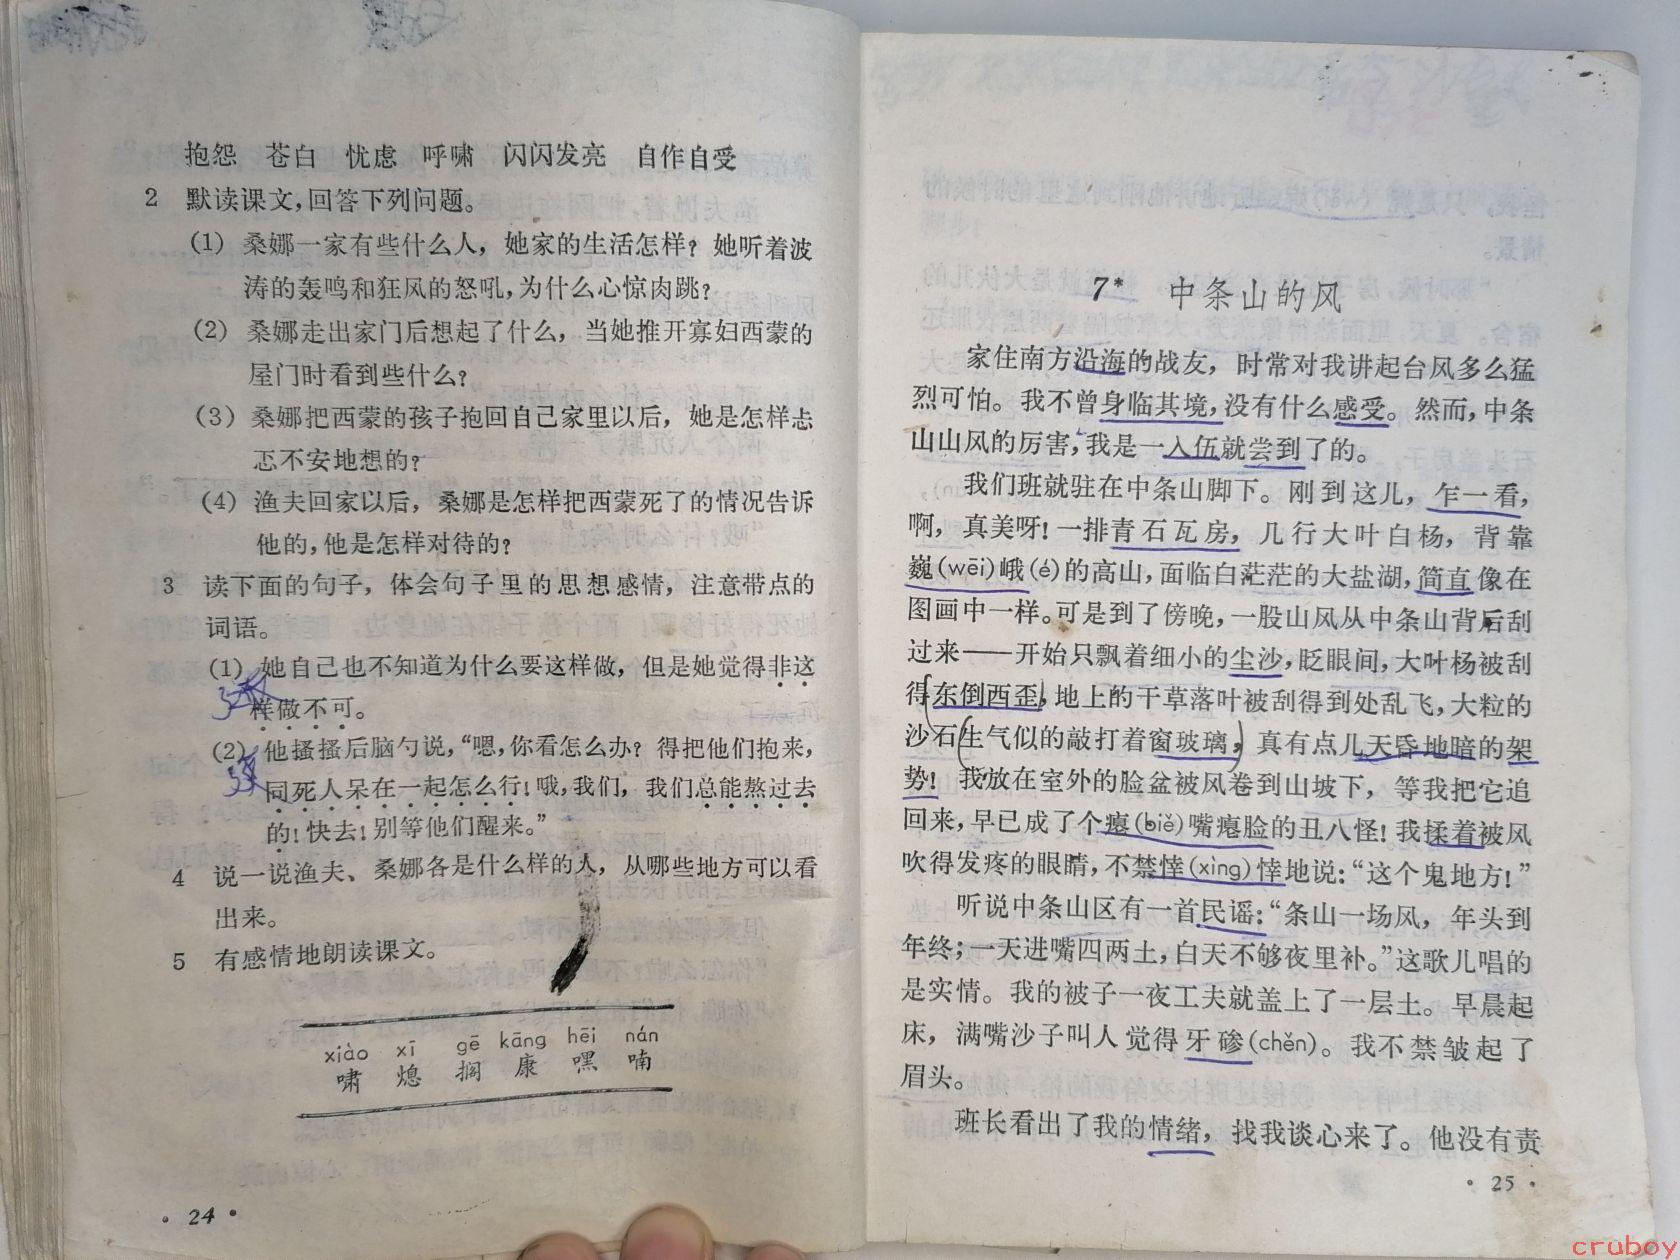 抱怨 苍白 忧虑 呼啸 闪闪发亮 自作自受
2 默读课文,回答下列问题。
(1) 桑娜一家有些什么人，她家的生活怎样？她听着波
涛的轰鸣和狂风的怒吼,为什么心惊肉跳?
(2) 桑娜走出家门后想起了什么，当她推开寡妇西蒙的
屋门时看到些什么?
(3) 桑娜把西蒙的孩子抱回自己家里以后，她是怎样忐
忑不安地想的?
(4) 渔夫回家以后，桑娜是怎样把西蒙死了的情况告诉
他的,他是怎样对待的?
3 读下面的句子，体会句子里的思想感情，注意带点的
词语。
(1) 她自己也不知道为什么要这样做，但是她觉得非这
样做不可。
(2) 他搔搔后脑勺说，“嗯,你看怎么办？得把他们抱来，
同死人呆在一起怎么行！哦,我们，我们总能熬过去
的！快去！别等他们醒来。”
4 说一说渔夫、桑娜各是什么样的人，从哪些地方可以看
出来。
5 有感情地朗读课文。
xiào xī gē kāng hēi nán
啸 熄 搁 康 嘿 喃
· 24 ·
7* 中条山的风
家住南方沿海的战友，时常对我讲起台风多么猛
烈可怕。我不曾身临其境,没有什么感受。然而,中条
山山风的厉害,我是一入伍就尝到了的。
我们班就驻在中条山脚下。刚到这儿，乍一看，
啊，真美呀！一排青石瓦房，几行大叶白杨，背靠
巍(wēi)峨(é)的高山,面临白茫茫的大盐湖,简直像在
图画中一样。可是到了傍晚，一股山风从中条山背后刮
过来——开始只飘着细小的尘沙,眨眼间,大叶杨被刮
得东倒西歪,地上的干草落叶被刮得到处乱飞,大粒的
沙石生气似的敲打着窗玻璃，真有点儿天昏地暗的架
势！我放在室外的脸盆被风卷到山坡下，等我把它追
回来,早已成了个瘪(biě)嘴瘪脸的丑八怪！我揉着被风
吹得发疼的眼睛,不禁悻(xìng)悻地说:“这个鬼地方！”
听说中条山区有一首民谣:“条山一场风，年头到
年终；一天进嘴四两土,白天不够夜里补。”这歌儿唱的
是实情。我的被子一夜工夫就盖上了一层土。早晨起
床，满嘴沙子叫人觉得牙碜(chěn)。我不禁皱起了
眉头。
班长看出了我的情绪，找我谈心来了。他没有责
· 25 ·
cruboy